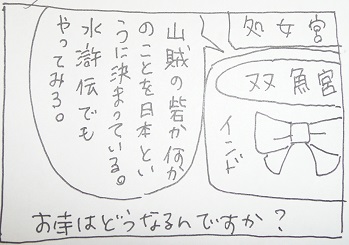 処女宮
双魚宮
インド
山賊の砦か何か
のことを日本とい
うに決まっている。
水滸伝でも
やってみろ。
お幸はどうなるんですか？